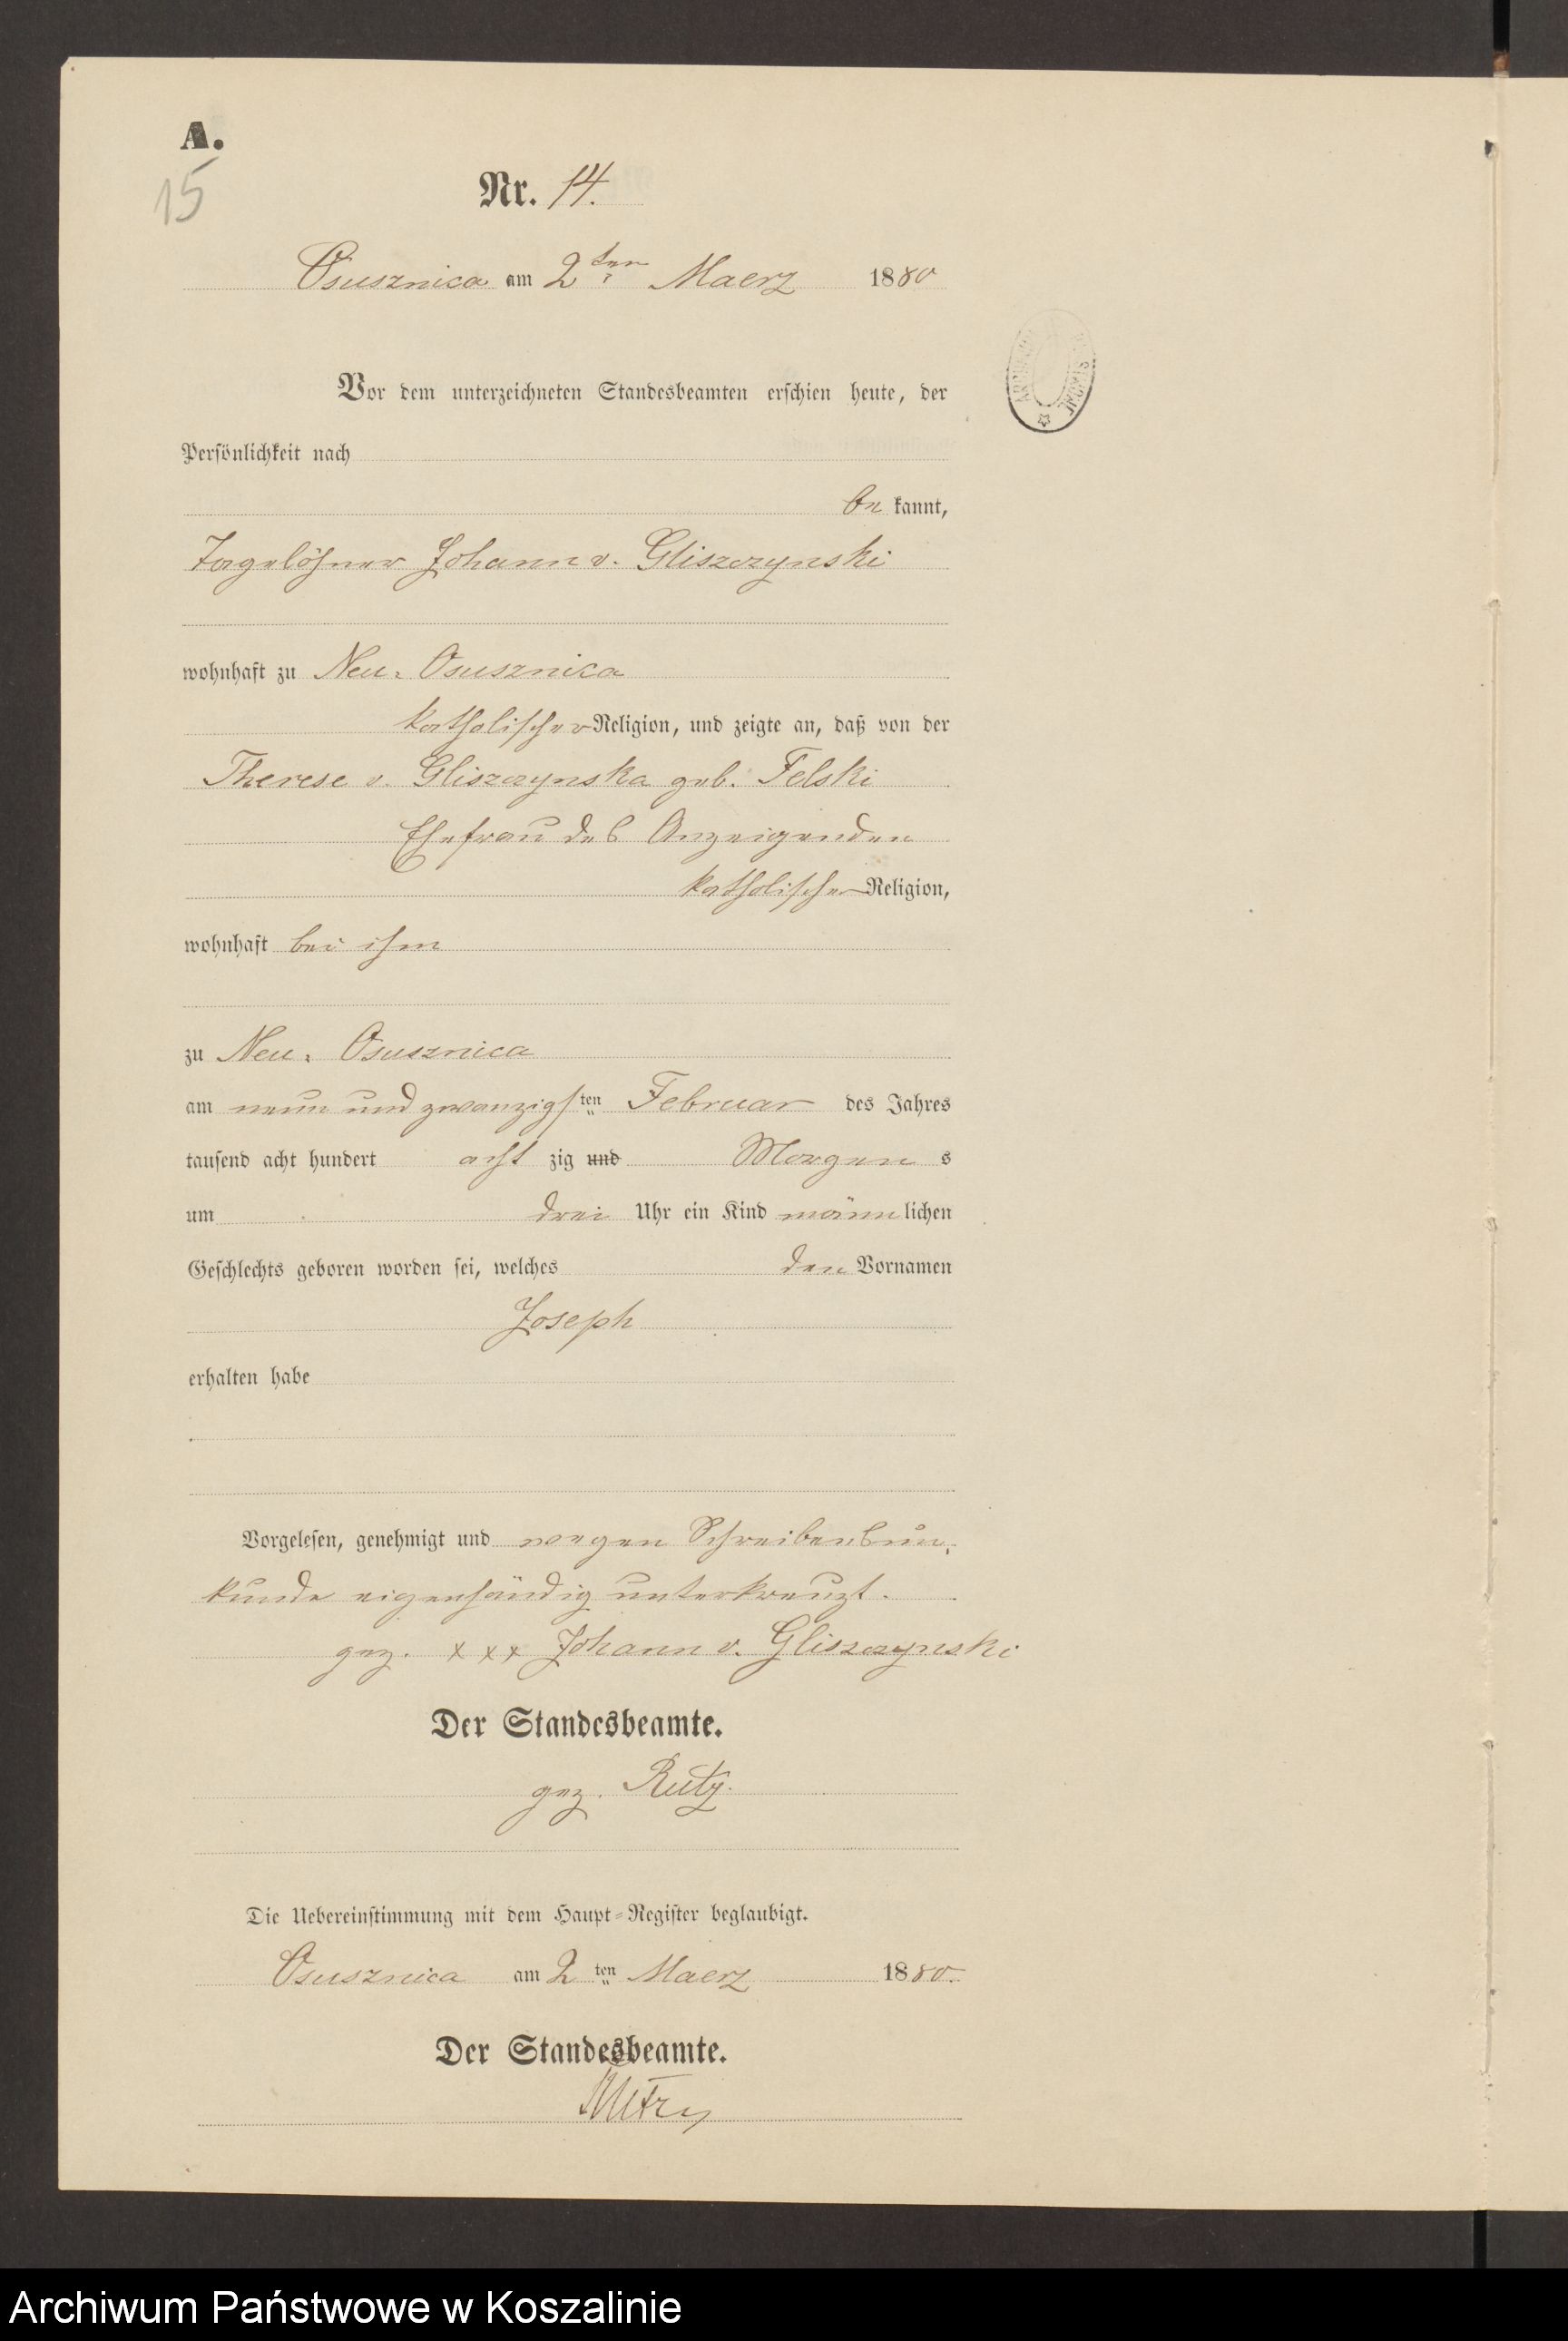 A.
15
Nr. 14.
Osusznica am 2ten Maerz 1880
Vor dem unterzeichneten Standesbeamten erschien heute, der
Persönlichkeit nach
be kannt,
Tagelöhner Johann v. Gliszczynski
wohnhaft zu Neu-Osusznica
katholischer Religion, und zeigte an, daß von der
Therese v. Gliszczynska geb. Felski
Ehefrau des Anzeigenden
katholischer Religion,
wohnhaft bei ihm
zu Neu-Osusznica
am neun und zwanzigsten Februar des Jahres
tausend acht hundert acht zig und Morgen s
um drei Uhr ein Kind männlichen
Geschlechts geboren worden sei, welches den Vornamen
Joseph
erhalten habe
Vorgelesen, genehmigt und wegen Schreibensun-
kunde eigenhändig unterkreuzt.
gez. xxx Johann v. Gliszczynski
Der Standesbeamte.
gez. Rutz.
Die Uebereinstimmung mit dem Haupt-Register beglaubigt.
Osusznica am 2ten Maerz 1880.
Der Standesbeamte.
Archiwum Państwowe w Koszalinie